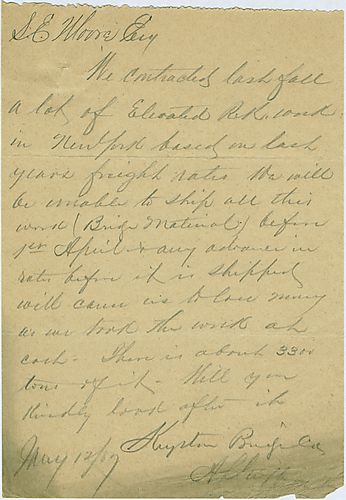 S E Moore Esq
We contracted last fall
a lot of Elevated R.R. work
in New York based on last
years freight rates We will
be unable to ship all this
work (Bridge Material) before
1st April & any advance in
rates before it is shipped
will cause us to lose money
as we took the work at
cost - There is about 3300
tons of it - Will you
Kindly look after it
Keystone Bridge Co
May 12/87